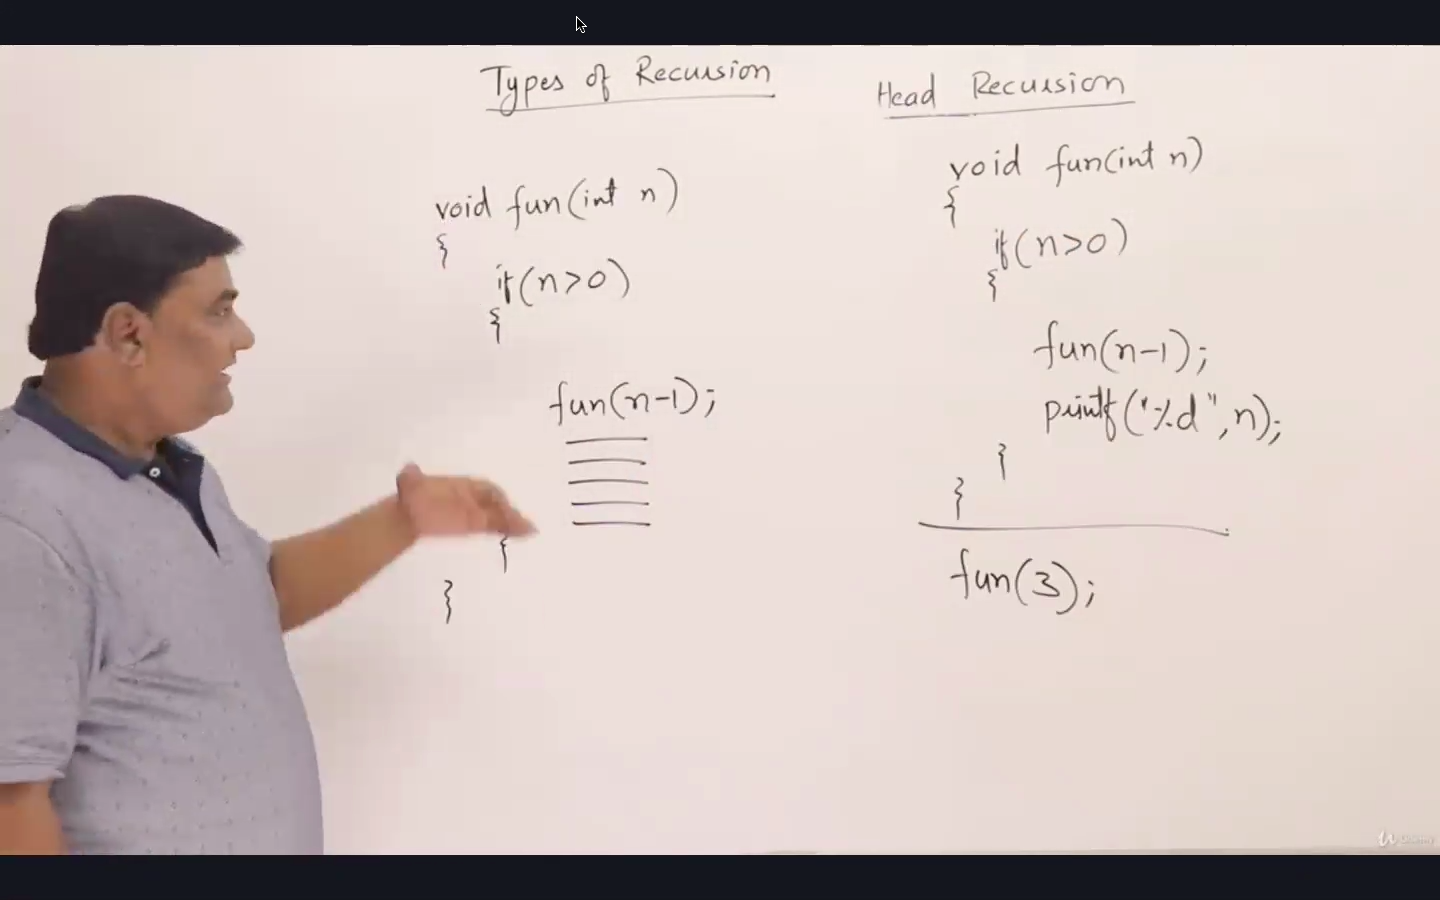 Types of Recursion
void fun(int n)
{
if(n>0)
{
fun(n-1);
}
}
Head Recursion
void fun(int n)
{
if(n>0)
{
fun(n-1);
printf("%d",n);
}
}
fun(3);
Udemy